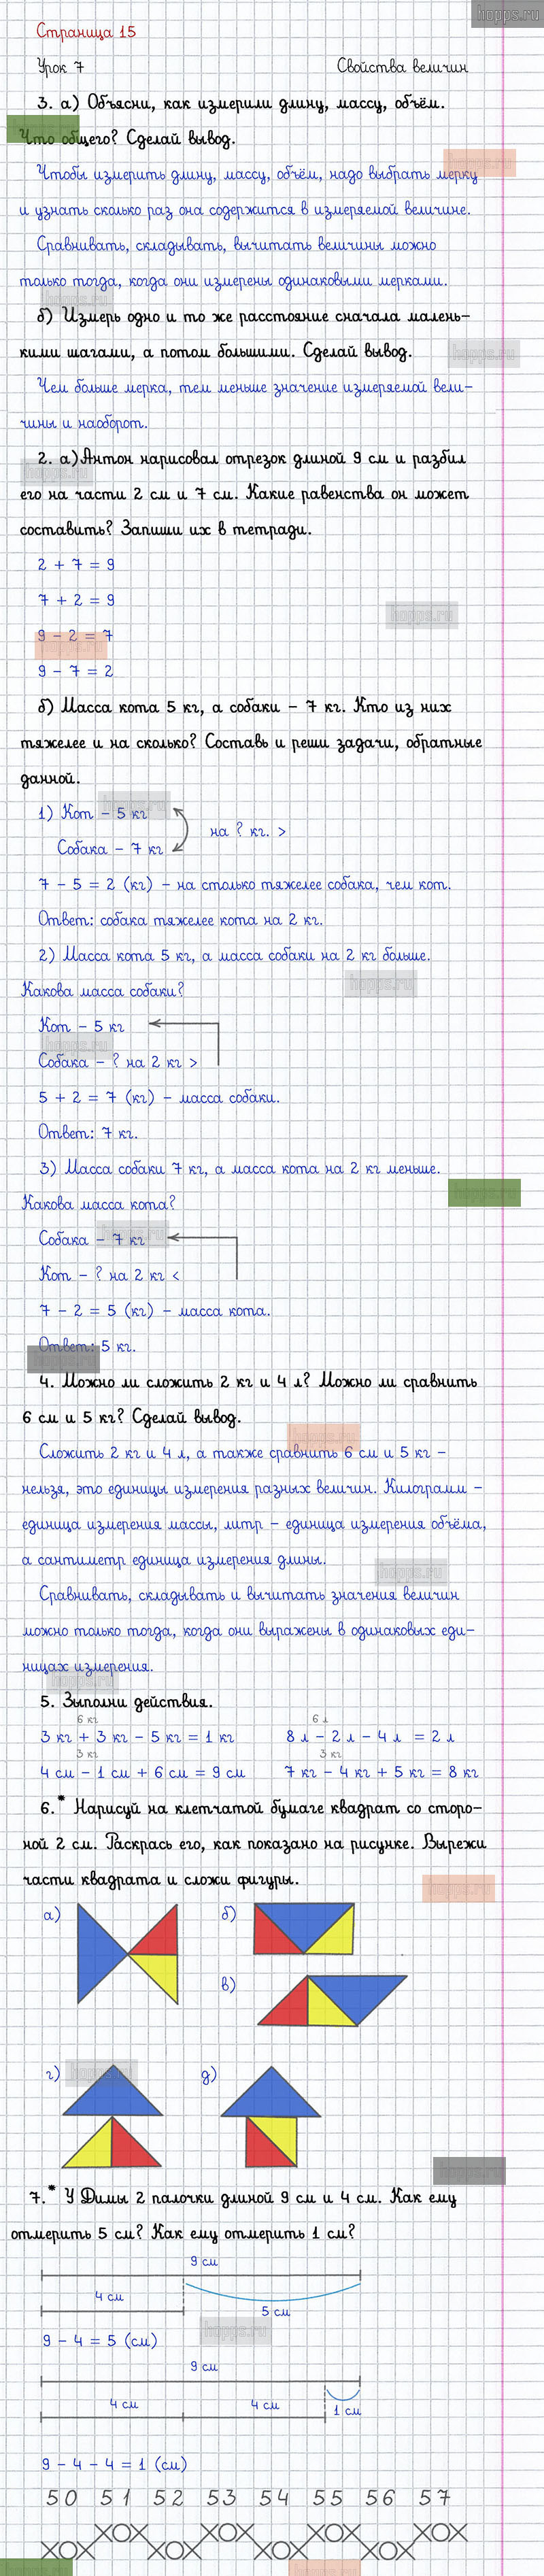 hopps.ru
Страница 15
Урок 7 Свойства величин
3. а) Объясни, как измерили длину, массу, объём.
Что общего? Сделай вывод.
Чтобы измерить длину, массу, объём, надо выбрать мерку
и узнать сколько раз она содержится в измеряемой величине.
Сравнивать, складывать, вычитать величины можно
только тогда, когда они измерены одинаковыми мерками.
б) Измерь одно и то же расстояние сначала малень-
кими шагами, а потом большими. Сделай вывод.
Чем больше мерка, тем меньше значение измеряемой вели-
чины и наоборот.
2. а) Антон нарисовал отрезок длиной 9 см и разбил
его на части 2 см и 7 см. Какие равенства он может
составить? Запиши их в тетради.
2 + 7 = 9
7 + 2 = 9
9 - 2 = 7
9 - 7 = 2
б) Масса кота 5 кг, а собаки - 7 кг. Кто из них
тяжелее и на сколько? Составь и реши задачи, обратные
данной.
1) Кот - 5 кг
на ? кг. >
Собака - 7 кг
7 - 5 = 2 (кг) - на столько тяжелее собака, чем кот.
Ответ: собака тяжелее кота на 2 кг.
2) Масса кота 5 кг, а масса собаки на 2 кг больше.
Какова масса собаки?
Кот - 5 кг
Собака - ? на 2 кг >
5 + 2 = 7 (кг) - масса собаки.
Ответ: 7 кг.
3) Масса собаки 7 кг, а масса кота на 2 кг меньше.
Какова масса кота?
Собака - 7 кг
Кот - ? на 2 кг <
7 - 2 = 5 (кг) - масса кота.
Ответ: 5 кг.
4. Можно ли сложить 2 кг и 4 л? Можно ли сравнить
6 см и 5 кг? Сделай вывод.
Сложить 2 кг и 4 л, а также сравнить 6 см и 5 кг -
нельзя, это единицы измерения разных величин. Килограмм -
единица измерения массы, литр - единица измерения объёма,
а сантиметр единица измерения длины.
Сравнивать, складывать и вычитать значения величин
можно только тогда, когда они выражены в одинаковых еди-
ницах измерения.
5. Зыполни действия.
6 кг 6 л
3 кг + 3 кг - 5 кг = 1 кг 8 л - 2 л - 4 л = 2 л
3 кг 3 кг
4 см - 1 см + 6 см = 9 см 7 кг - 4 кг + 5 кг = 8 кг
6.* Нарисуй на клетчатой бумаге квадрат со сторо-
ной 2 см. Раскрась его, как показано на рисунке. Вырежи
части квадрата и сложи фигуры.
а) б)
в)
г) д)
7.* У Димы 2 палочки длиной 9 см и 4 см. Как ему
отмерить 5 см? Как ему отмерить 1 см?
9 см
4 см
5 см
9 - 4 = 5 (см)
9 см
4 см 4 см 1 см
9 - 4 - 4 = 1 (см)
50 51 52 53 54 55 56 57